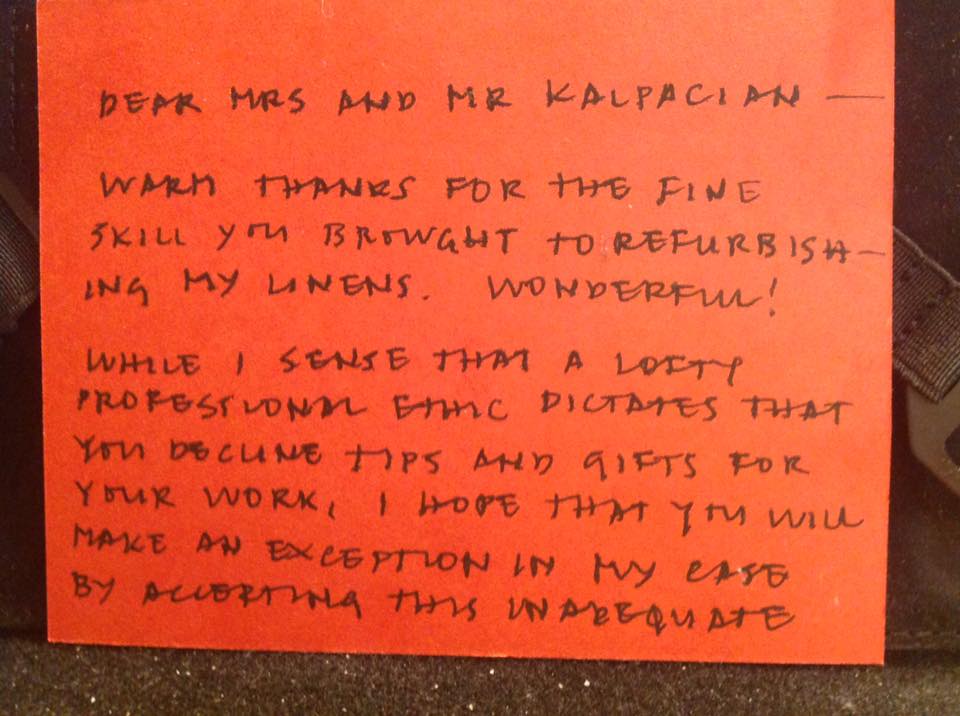 DEAR MRS AND MR KALPACIAN —
WARM THANKS FOR THE FINE
SKILL YOU BROUGHT TO REFURBISH-
ING MY LINENS. WONDERFUL!
WHILE I SENSE THAT A LOFTY
PROFESSIONAL ETHIC DICTATES THAT
YOU DECLINE TIPS AND GIFTS FOR
YOUR WORK, I HOPE THAT YOU WILL
MAKE AN EXCEPTION IN MY CASE
BY ACCEPTING THIS INADEQUATE